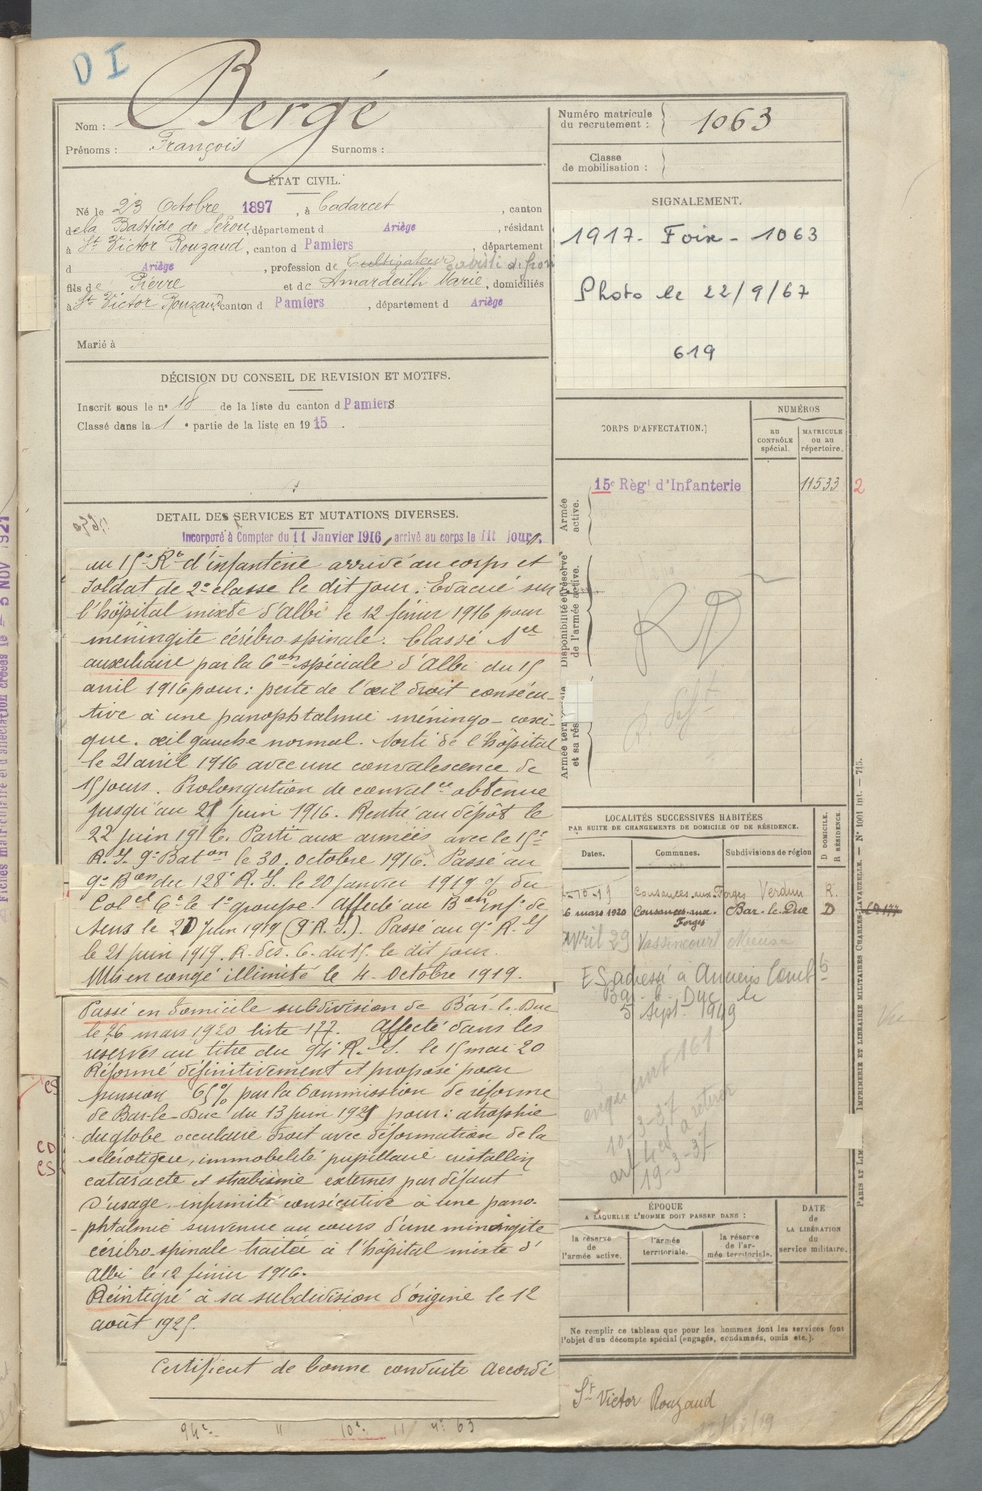 D I
Nom : Bergé
Prénoms : François Surnoms :
Numéro matricule
du recrutement : 1063
Classe
de mobilisation :
ÉTAT CIVIL.
Né le 23 Octobre 1897, à Cadarcet, canton
de la Bastide de Sérou, département d Ariège, résidant
à St Victor Rouzaud, canton d Pamiers, département
d Ariège, profession de Cultivateur
fils de Pierre et de Amardeilh Marie, domiciliés
à St Victor Rouzaud, canton d Pamiers, département d Ariège
Marié à
SIGNALEMENT.
1917. Foix - 1063
Photo le 22/9/67
619
DÉCISION DU CONSEIL DE REVISION ET MOTIFS.
Inscrit sous le n° 18 de la liste du canton d Pamiers
Classé dans la 1e partie de la liste en 1915.
CORPS D'AFFECTATION.
NUMÉROS
au
CONTRÔLE
spécial.
MATRICULE
ou au
répertoire.
Armée
active.
15e Régt d'Infanterie 11533 2
Disponibilité et réserve
de l'armée active.
RD
Armée territoriale
et sa rés
DÉTAIL DES SERVICES ET MUTATIONS DIVERSES.
Incorporé à Compter du 11 Janvier 1916, arrivé au corps le dit jour,
au 15e Rt d'infanterie arrivé au corps et
Soldat de 2e classe le dit jour. Évacué sur
l'hôpital mixte d'Albi le 12 févier 1916 pour
méningite cérébro spinale. Classé Sce
auxiliaire par la Con spéciale d'Albi du 15
avril 1916 pour : perte de l'œil droit consécu-
tive à une panophtalmie méningo-cocci-
que. œil gauche normal. Sorti de l'hôpital
le 21 avril 1916 avec une convalescence de
15 jours. Prolongation de convalce obtenue
jusqu'au 21 juin 1916. Rentré au dépôt le
22 juin 1916. Parti aux armées avec le 15e
R.I. 9e Baton le 30 octobre 1916. Passé au
9e Bon du 128e R.I. le 20 janvier 1919 % du
Colel Ct le 1e groupe. Affecté au Bon inf. de
Sens le 20 juin 1919 (9e R.I). Passé au 9e R.I
le 21 juin 1919. R. des. C. du 15. le dit jour.
Mis en congé illimité le 4 Octobre 1919.
Passé en domicile subdivision de Bar-le-Duc
le 26 mars 1920 liste 177. Affecté dans les
réserves au titre du 94e R.I. le 15 mai 20
Réformé définitivement et proposé pour
pension 65% par la Commission de réforme
de Bar-le-Duc du 13 juin 1921 pour : atrophie
du globe occulaire droit avec déformation de la
sclérotique, immobilité pupillaire cristallin
cataracte et strabisme externes par défaut
d'usage. infirmité consécutive à une pano-
-phtalmie survenue au cours d'une miningite
cérébro spinale traitée à l'hôpital mixte d'
Albi le 12 févier 1916.
Réintégré à sa subdivision d'origine le 12
août 1925.
Certificat de bonne conduite Accordé
94e " 10e 11
LOCALITÉS SUCCESSIVES HABITÉES
PAR SUITE DE CHANGEMENTS DE DOMICILE OU DE RÉSIDENCE.
Dates. Communes. Subdivisions de région D DOMICILE. R RÉSIDENCE
-10-19 Cousances-aux-Forges Verdun R.
26 mars 1920 Cousances-aux-Forges Bar-le-Duc D
avril 29 Vassincourt Meuse
ES adressé à Anciens Combts
Bar-le-Duc le
5 Sept. 1949
10-3-37
art 4 et à retirer
19-3-37
ÉPOQUE
A LAQUELLE L'HOMME DOIT PASSER DANS :
la réserve
de
l'armée active.
l'armée
territoriale.
la réserve
de l'ar-
mée territoriale.
DATE
de
LA LIBÉRATION
du
service militaire.
Ne remplir ce tableau que pour les hommes dont les services font
l'objet d'un décompte spécial (engagés, condamnés, omis etc.).
St Victor Rouzaud
PARIS ET LIM. IMPRIMERIE ET LIBRAIRIE MILITAIRES CHARLES LAVAUZELLE. — N° 1001 int. — 715.
Fiches matriculaire et d'affectation créées le - 5 NOV 1921
CS
CD
CS